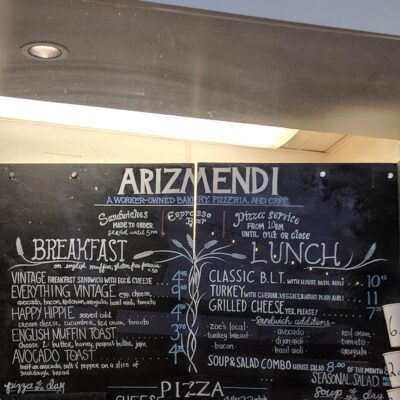 ARIZMENDI
A WORKER-OWNED BAKERY, PIZZERIA, AND CAFE
Sandwiches
MADE TO ORDER
Espresso
Bar
Pizza service
FROM 10am
UNTIL out or close
BREAKFAST
on english muffin, gluten free focaccia
VINTAGE BREAKFAST SANDWICH WITH EGG & CHEESE
EVERYTHING VINTAGE egg, cheese,
avocado, bacon,
HAPPY HIPPIE served cold
cream cheese, cucumber, red onion, tomato
ENGLISH MUFFIN TOAST
choose 2: butter, honey, peanut butter, jam
AVOCADO TOAST
half an avocado, salt & pepper on a slice of
sourdough bread
pizza of the day
LUNCH
CLASSIC B.L.T. WITH HOUSE BASIL AIOLI 10.95
TURKEY WITH CHEDDAR, VEGGIES, & HOUSE DIJON AIOLI 11
GRILLED CHEESE YES, PLEASE! 7
Sandwich additions
zoe's local
turkey breast
bacon
avocado
dijon aioli
basil aioli
red onion
tomato
arugula
SOUP & SALAD COMBO HOUSE SALAD 8.00
OF THE MONTH
SEASONAL SALAD
soup of the day
PIZZA
CHEESE